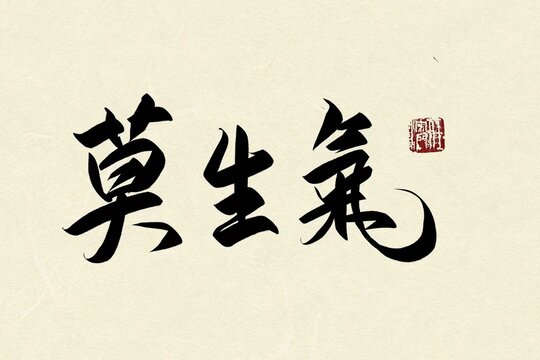 莫生氣